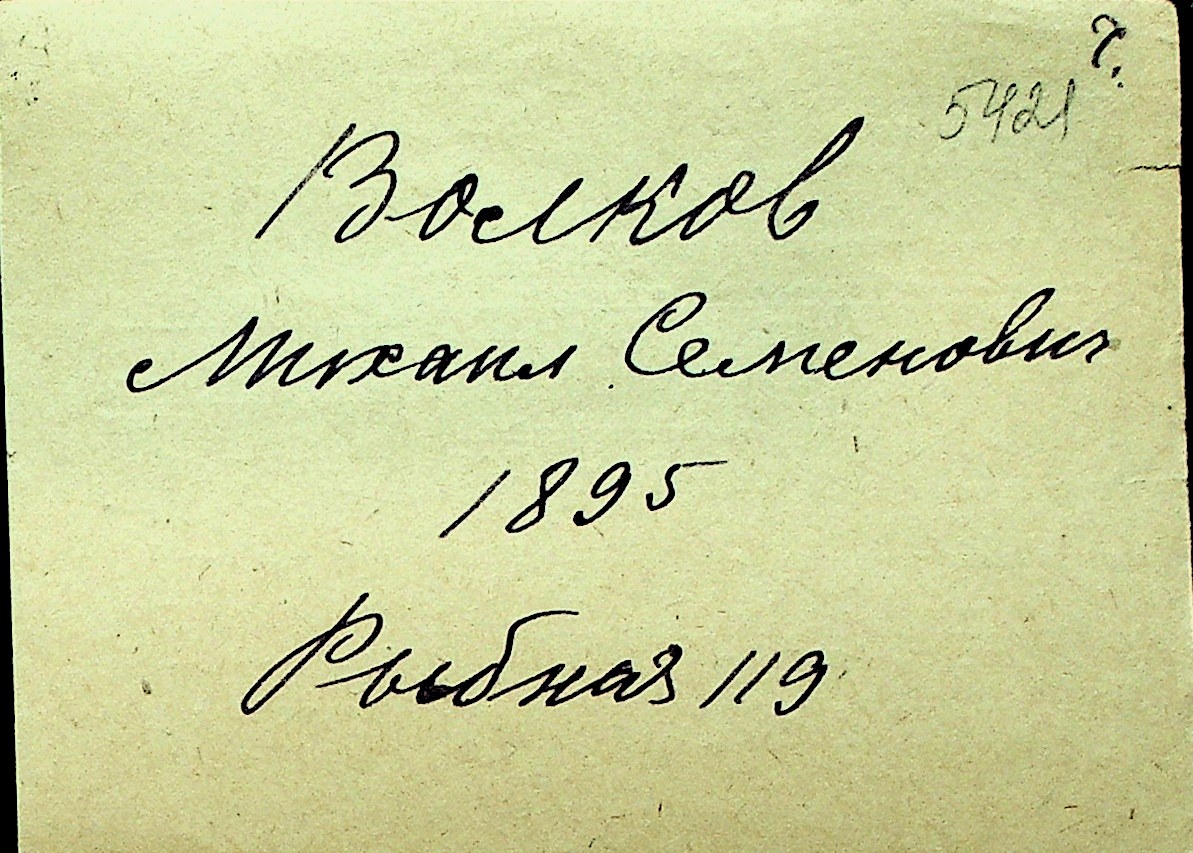 5421
Волков
Михаил Семенович
1895
Рыбная 119